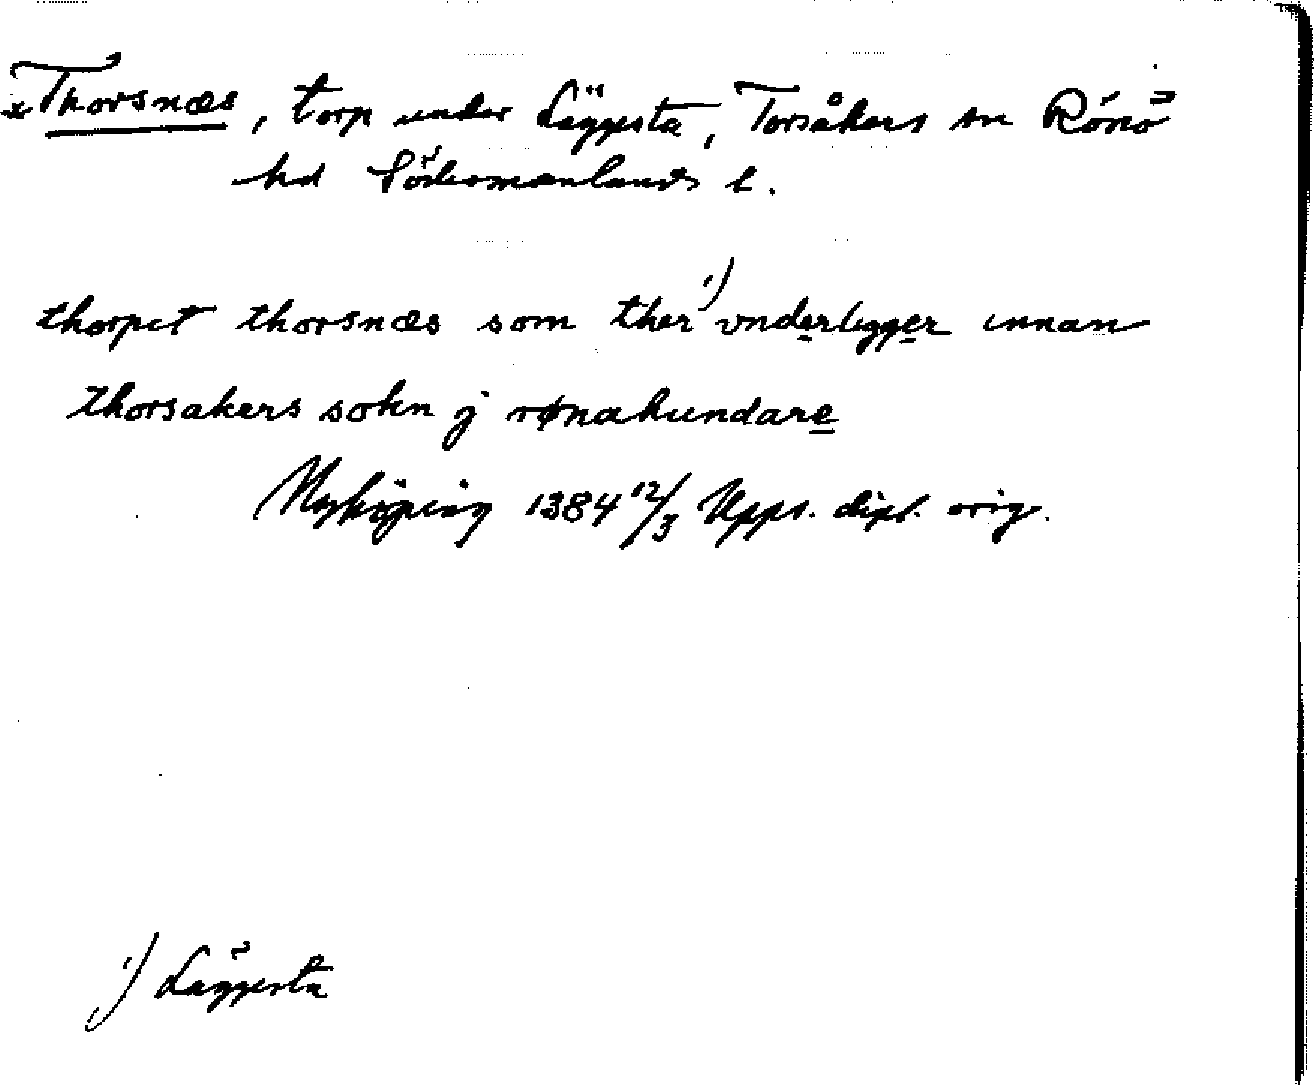 x Thorsnæs, torp under Läggesta, Torsåkers sn Rönö
hd Södermanlands l.
thorpet thorsnæs som ther 1) vnderligger innan
thorsakers sokn j rønahundare
Nyköping 1384 12/3 Upps. dipl. orig.
1) Läggesta